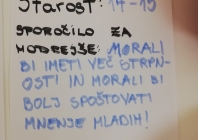 Starost: 14-15
SPOROČILO ZA
MODREJŠE: MORALI
BI IMETI VEČ STRPN-
OSTI IN MORALI BI
BOLJ SPOŠTOVATI
MNENJE MLADIH!